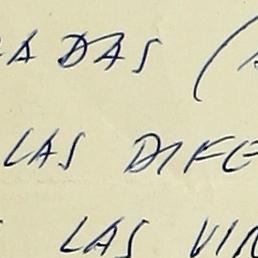 ADAS (
LAS DIFE
LAS VIR